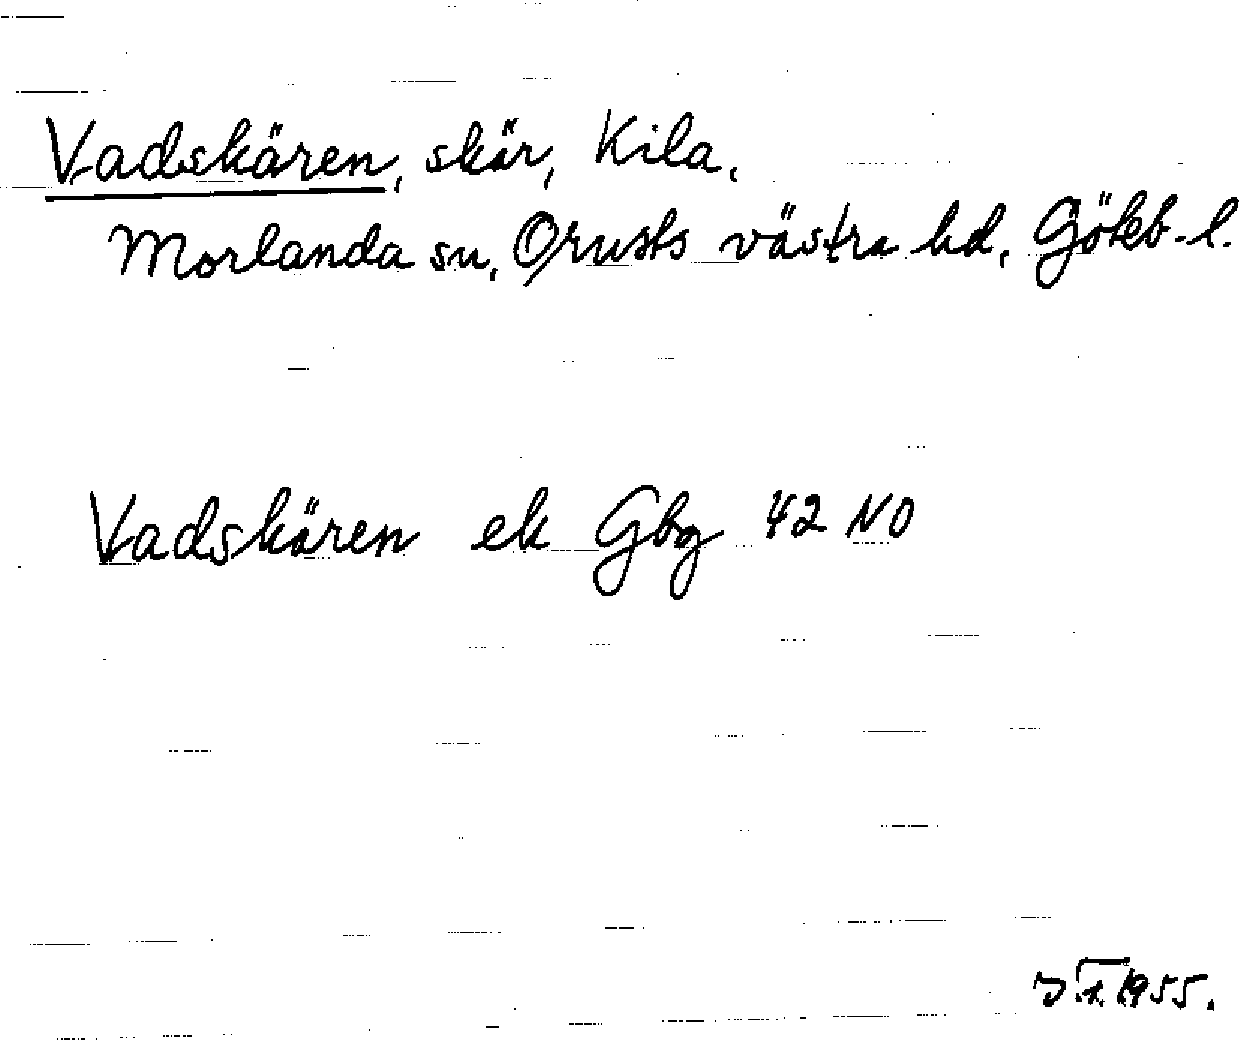 Vadskären, skär, Kila.
Morlanda sn, Orusts västra hd, Götebs-l.
Vadskären ek Gbg 42 NO
1955.